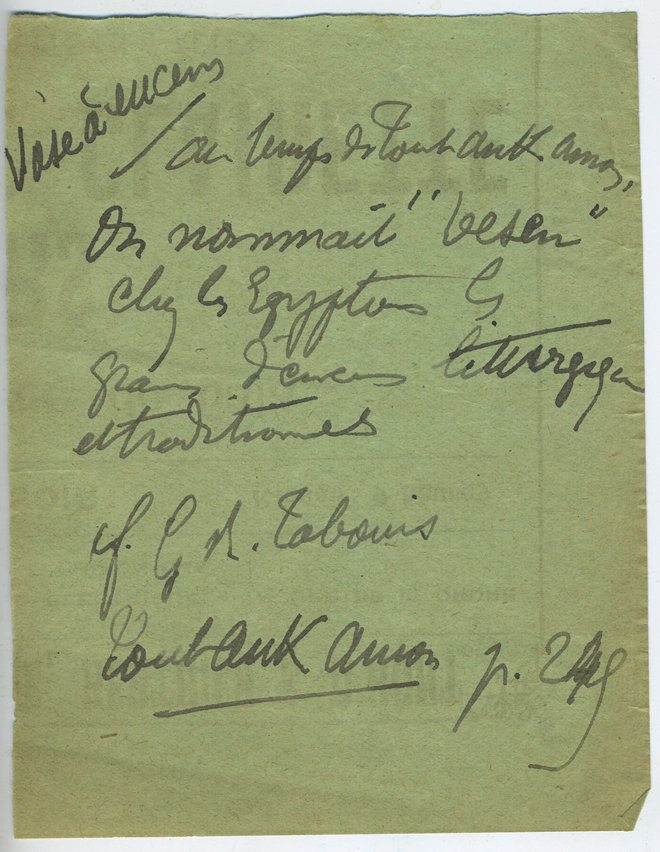 Vase à encens
/ au temps de Toutankamon,
On nommait "besen"
chez les Egyptiens les
grains d'encens liturgiques
et traditionnels
cf. G. R. Tabouis
Toutankamon p.